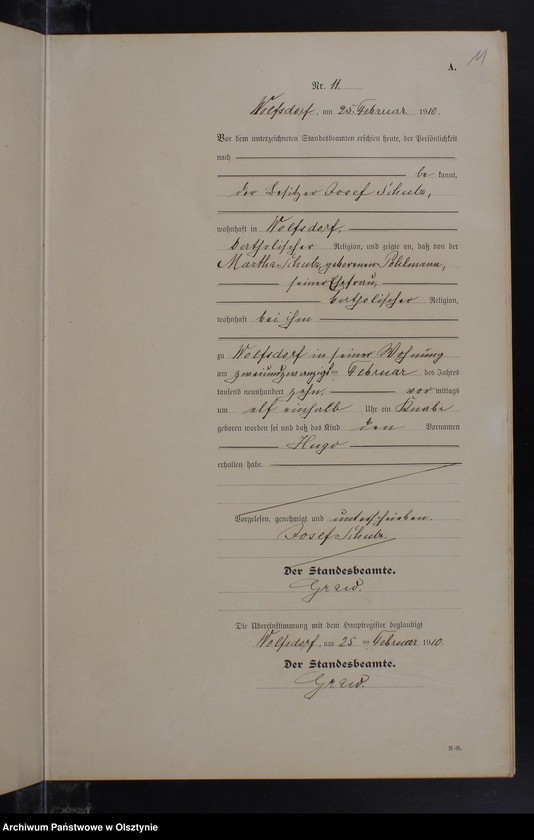 11
A.
Nr. 11
Wolfsdorf, am 25. Februar 1910.
Vor dem unterzeichneten Standesbeamten erschien heute, der Persönlichkeit
nach
be kannt,
der Besitzer Josef Schulz,
wohnhaft in Wolfsdorf,
katholischer Religion, und zeigte an, daß von der
Martha Schulz, geborenen Pohlmann,
seiner Ehefrau,
katholischer Religion,
wohnhaft bei ihm
zu Wolfsdorf in seiner Wohnung
am zweiundzwanzigsten Februar des Jahres
tausend neunhundert zehn, vor mittags
um elf einhalb Uhr ein Knabe
geboren worden sei und daß das Kind den Vornamen
Hugo
erhalten habe.
Vorgelesen, genehmigt und unterschrieben.
Josef Schulz.
Der Standesbeamte.
Graw.
Die Übereinstimmung mit dem Hauptregister beglaubigt
Wolfsdorf, am 25 ten Februar 1910.
Der Standesbeamte.
Graw.
Archiwum Państwowe w Olsztynie